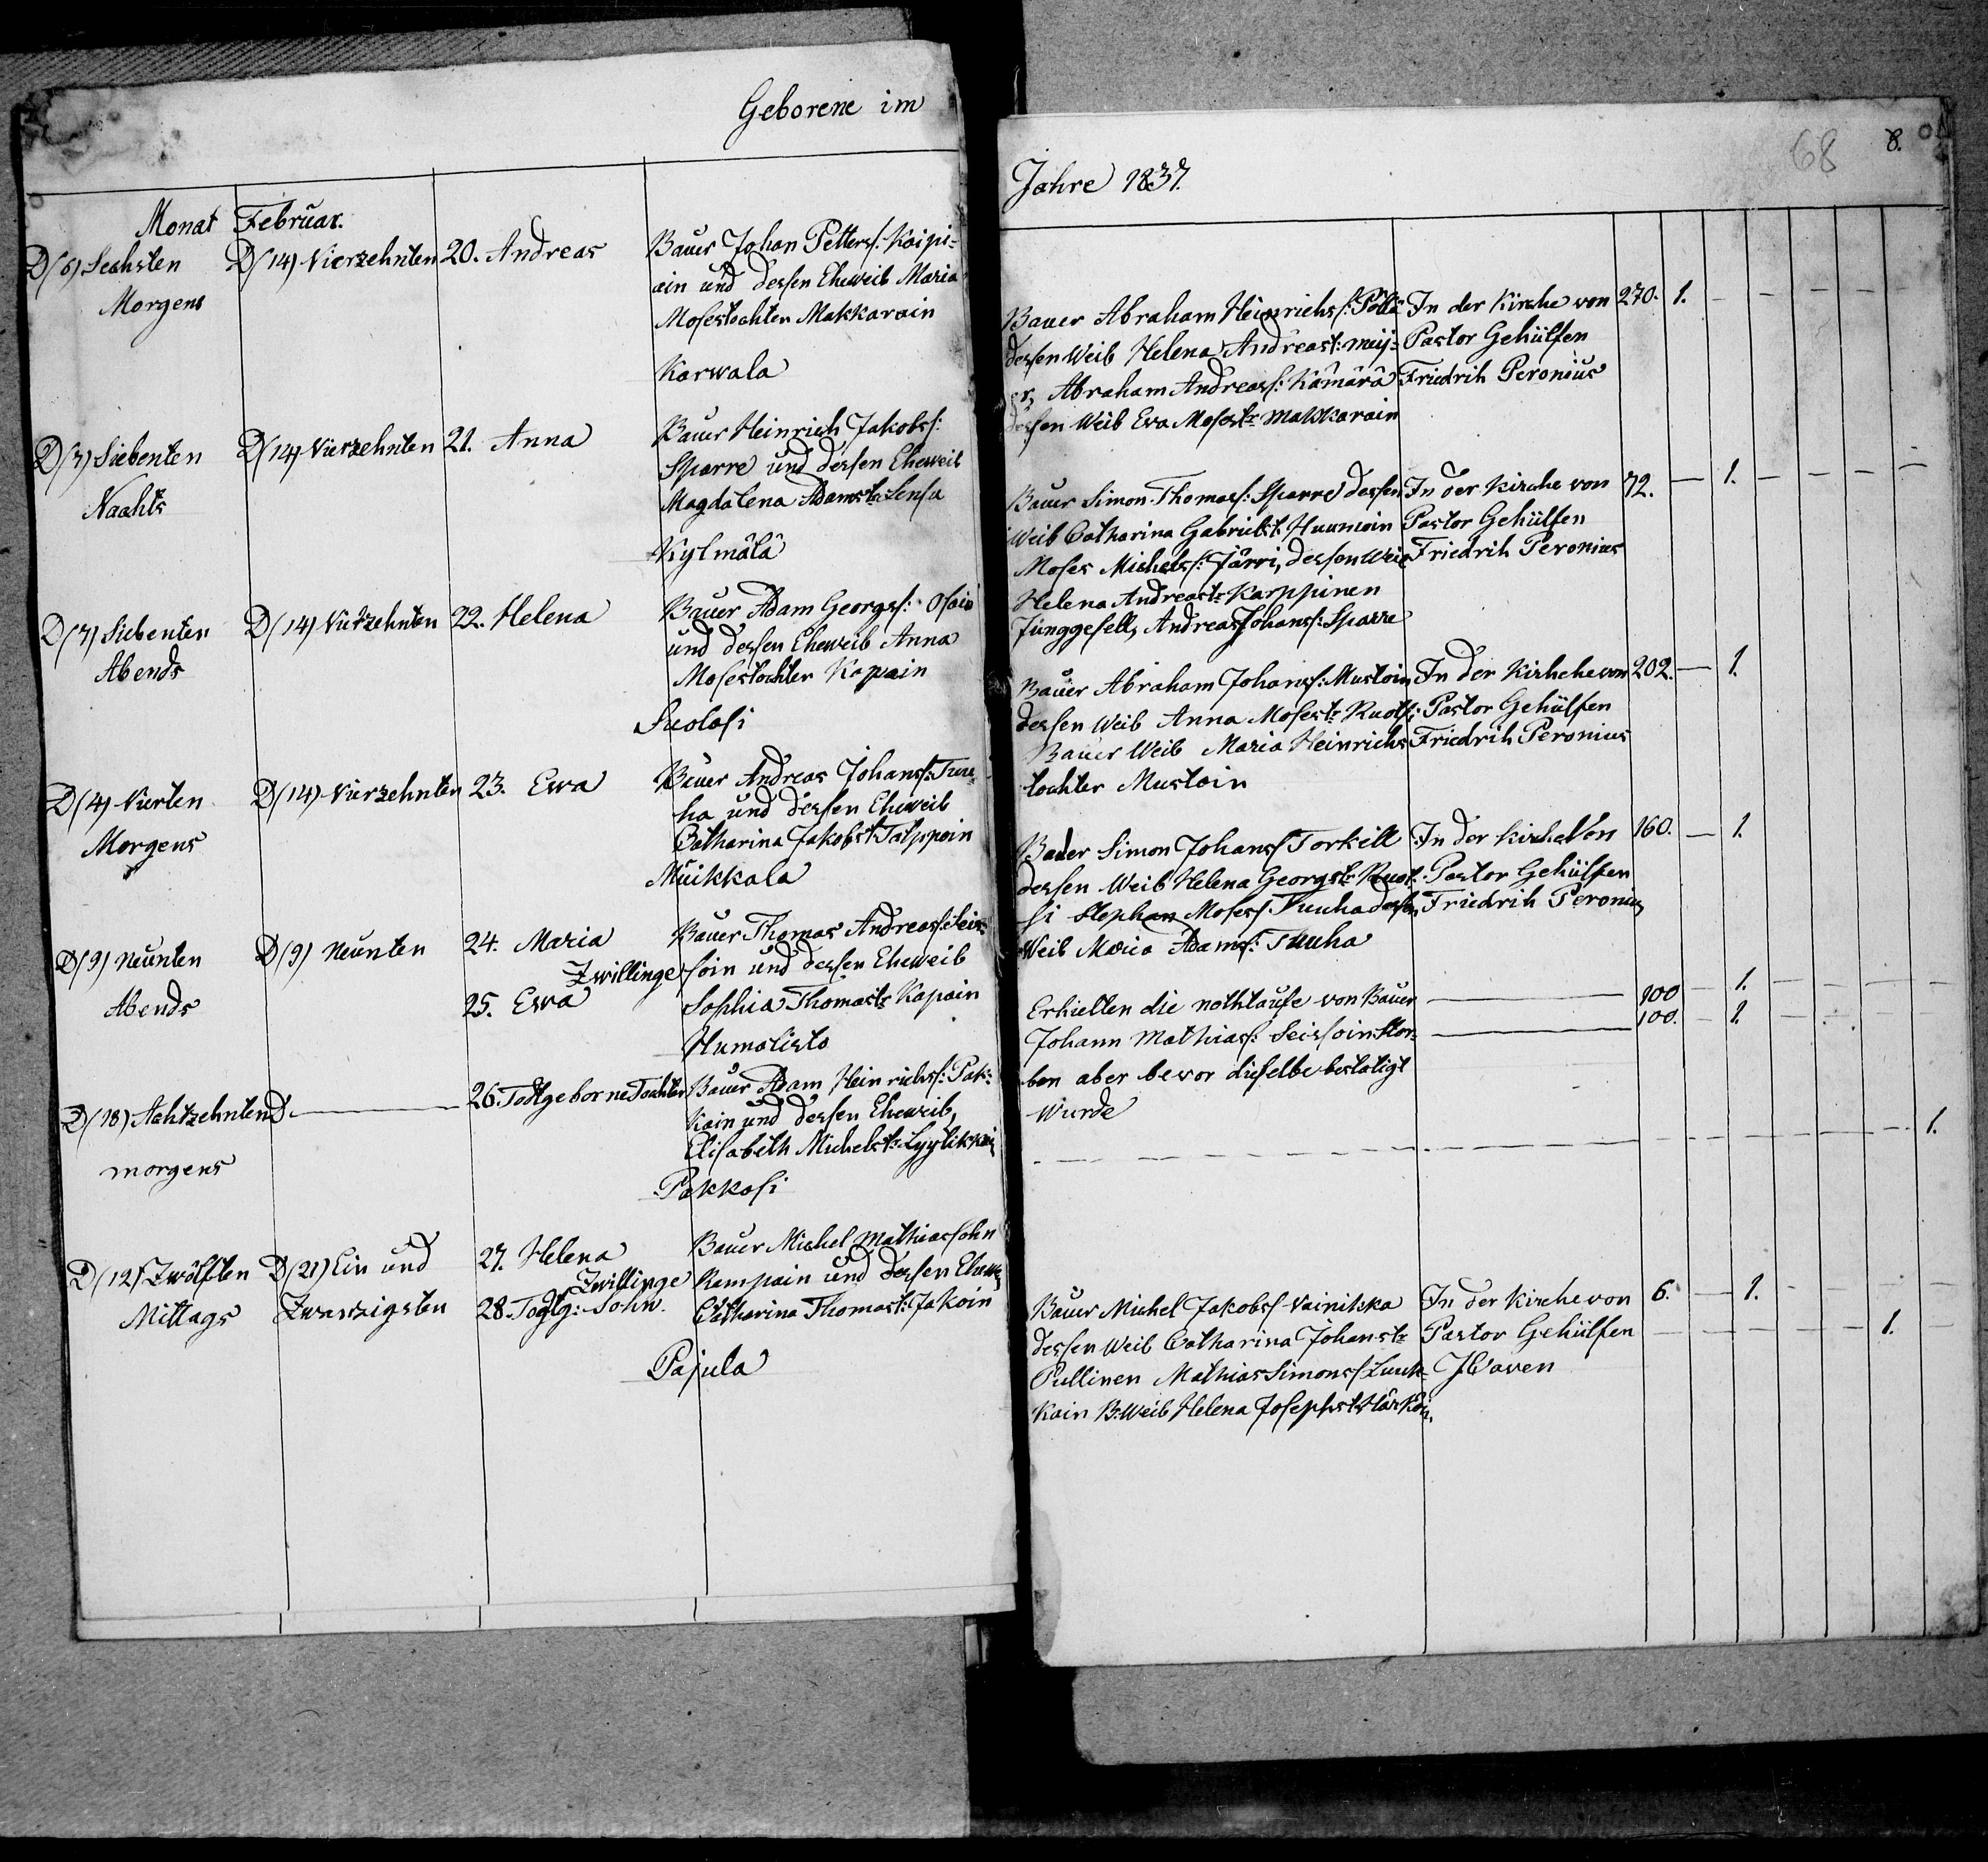 Geborene im
Monat Februar.
D (6) Sechsten D (14) Vierzehnten 20. Andreas Bauer Johan Petters: Kaipi-
Morgens ain und dessen Eheweib Maria
Mosestochter Makkarain
Karwala
D (7) Siebenten D (14) Vierzehnten 21. Anna Bauer Heinrich Jakobs:
Nachts Sparre und dessen Eheweib
Magdalena Adamst:
Kylmälä
D (7) Siebenten D (14) Vierzehnten 22. Helena Bauer Adam Georgs: Osain
Abends und dessen Eheweib Anna
Mosestochter Kapain
Suolasi
D (4) Vierten D (14) Vierzehnten 23. Ewa Bauer Andreas Johans: Tuu-
Morgens ha und dessen Eheweib
Catharina Jakobst:
Muikkala
D (9) Neunten D (9) Neunten 24. Maria Bauer Thomas Andreass: Seis-
Zwillinge soin und dessen Eheweib
Abends 25. Ewa Sophia Thomast: Kapain
Humalisto
D (18) Achtzehnten D 26. Todtgeborne Tochter Bauer Adam Heinrichs: Pak-
kain und dessen Eheweib,
morgens Elisabeth Michelst: Lyytikkäin
Pakkasi
D (12) Zwölften D (21) Ein und 27. Helena Bauer Michel Mathiassohn
Zwillinge Kampain und dessen Ehew:
Mittags Zwanzigsten 28. Sohn. Catharina Thomast: Jakoin
Pajula
68 8.
Jahre 1837.
Bauer Abraham Heinrichs: Pöllä In der Kirche von 270. 1. — — — —
dessen Weib Helena Andreast: meij- Pastor Gehülfen
er, Abraham Andreass: Kämärä Friedrih Peronius
dessen Weib Eva Mosest: Makkarain
Bauer Simon Thomass: Sparre dessen In der Kirche von 72. — 1. — — — —
Weib Catharina Gabrielst: Huumoin Pastor Gehülfen
Moses Michels: Järri, dessen Weib Friedrih Peronius
Helena Andreast: Karppinen
Junggesell, Andreas Johans: Sparre
Bauer Abraham Johans: Mustoin In der Kirhche von 202. — 1.
dessen Weib Anna Mosest: Ruotsi Pastor Gehülfen
Bauer Weib Maria Heinrichs Friedrih Peronius
tochter Mustoin
Bauer Simon Johans: Torkell In der Kirche Von 160. — 1.
dessen Weib Helena Georgst: Ruot- Pastor Gehülfen
si Stephan Moses: Tuuha dessen Friedrih Peronius
Weib Maria Adams: Tuuha
Erhielten die nothtaufe von Bauer — 100 — 1. — — — —
Johann Mathias: Seissoin Stor- — 100. — 1. — — — —
ben aber bevor dieselbe bestätigt
Wurde
— 1.
Bauer Michel Jakobs: Vainikka In der Kirche von 6. — 1. — — — —
dessen Weib Catharina Johanst: Pastor Gehülfen — — — — — 1. —
Pullinen Mathias Simons: Luuk-
kain B: Weib Helena Josephst: Härköin,